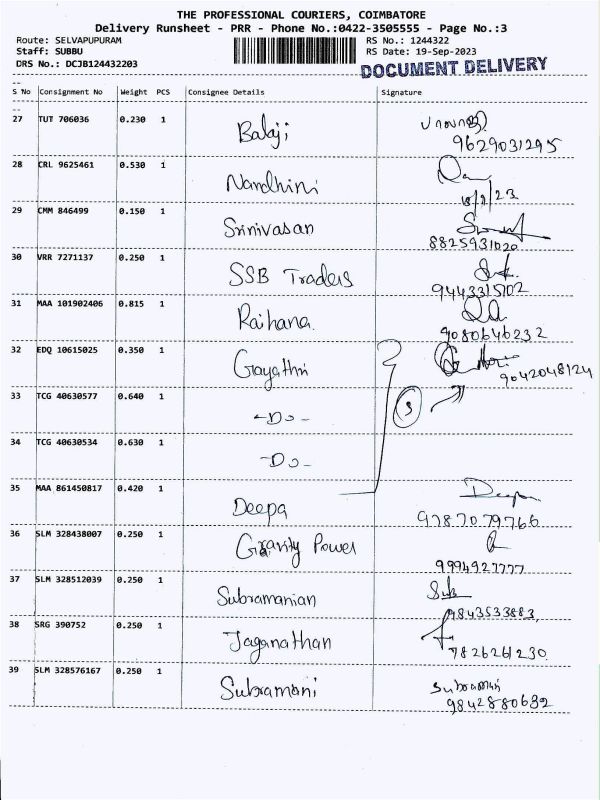 THE PROFESSIONAL COURIERS, COIMBATORE
Delivery Runsheet - PRR - Phone No.:0422-3505555 - Page No.:3
Route: SELVAPUPURAM RS No.: 1244322
Staff: SUBBU RS Date: 19-Sep-2023
DRS No.: DCJB124432203 DOCUMENT DELIVERY
S No Consignment No Weight PCS Consignee Details Signature
27 TUT 706036 0.230 1 Balaji
9629031295
28 CRL 9625461 0.530 1 Nandhini
29 CMM 846499 0.150 1 Srinivasan
8825931020
30 VRR 7271137 0.250 1 SSB Traders
9443315102
31 MAA 101902406 0.815 1 Raihana.
9080646232
32 EDQ 10615025 0.350 1 Gayathri
9042048124
33 TCG 40630577 0.640 1 -Do- 3
34 TCG 40630534 0.630 1 -Do-
35 MAA 861450817 0.420 1 Deepa Deepa
9787079766
36 SLM 328438007 0.250 1 Gravity Power
9994927777
37 SLM 328512039 0.250 1 Subramanian Sub
9843533883,
38 SRG 390752 0.250 1 Jaganathan
7826261230
39 SLM 328576167 0.250 1 Subramani Subramani
9842880632